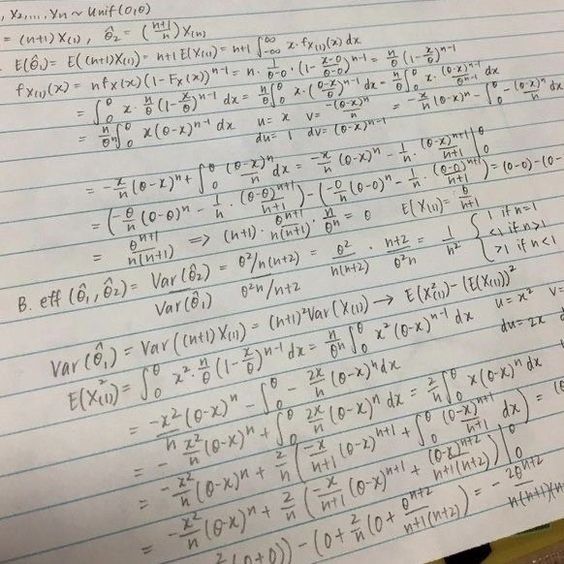 , X2,..., Yn ~ Unif(0,θ)
= (n+1)X(1) , θ̂2 = ((n+1)/n) X(n)
E(θ̂1) = E((n+1)X(1)) = n+1 E(X(1)) = n+1 ∫_{-∞}^{∞} x·f_{X(1)}(x) dx
f_{X(1)}(x) = n f_X(x)(1-F_X(x))^{n-1} = n · 1/(θ-0) · (1 - (x-0)/(θ-0))^{n-1} = n/θ (1 - x/θ)^{n-1}
= ∫_0^θ x · n/θ (1 - x/θ)^{n-1} dx = n/θ ∫_0^θ x · ((θ-x)^{n-1}/θ^{n-1}) dx
= n/θ^n ∫_0^θ x(θ-x)^{n-1} dx u = x v = -(θ-x)^n/n = -x/n (θ-x)^n - ∫_0^θ -(θ-x)^n/n dx
du = 1 dv = (θ-x)^{n-1}
= -x/n (θ-x)^n + ∫_0^θ (θ-x)^n/n dx = -x/n (θ-x)^n - 1/n · (θ-x)^{n+1}/(n+1) |_0^θ
= (-θ/n (θ-θ)^n - 1/n · (θ-θ)^{n+1}/(n+1)) - (-0/n (θ-0)^n - 1/n · (θ-0)^{n+1}/(n+1)) = (0-0) - (0-
= θ^{n+1}/(n(n+1)) => (n+1) · θ^{n+1}/(n(n+1)) · n/θ^n = θ E(X(1)) = θ/(n+1)
B. eff(θ̂1, θ̂2) = Var(θ̂2)/Var(θ̂1) = (θ²/n(n+2))/(θ²n/n+2) = θ²/(n(n+2)) · (n+2)/(θ²n) = 1/n² { 1 if n=1
<1 if n>1
>1 if n<1
Var(θ̂1) = Var((n+1)X(1)) = (n+1)² Var(X(1)) → E(X²(1)) - (E(X(1)))²
E(X²(1)) = ∫_0^θ x² · n/θ (1 - x/θ)^{n-1} dx = n/θ^n ∫_0^θ x²(θ-x)^{n-1} dx u = x² v =
du = 2x d
= -x²/n (θ-x)^n - ∫_0^θ - 2x/n (θ-x)^n dx
= -x²/n (θ-x)^n + ∫_0^θ 2x/n (θ-x)^n dx = 2/n ∫_0^θ x(θ-x)^n dx
= -x²/n (θ-x)^n + 2/n (-x/(n+1) (θ-x)^{n+1} + ∫_0^θ (θ-x)^{n+1}/(n+1) dx) = (0
= -x²/n (θ-x)^n + 2/n (-x/(n+1) (θ-x)^{n+1} + (θ-x)^{n+2}/(n+1)(n+2)) |_0^θ
(0+0)) - (0 + 2/n (0 + θ^{n+2}/(n+1)(n+2)) = - 2θ^{n+2}/n(n+1)(n